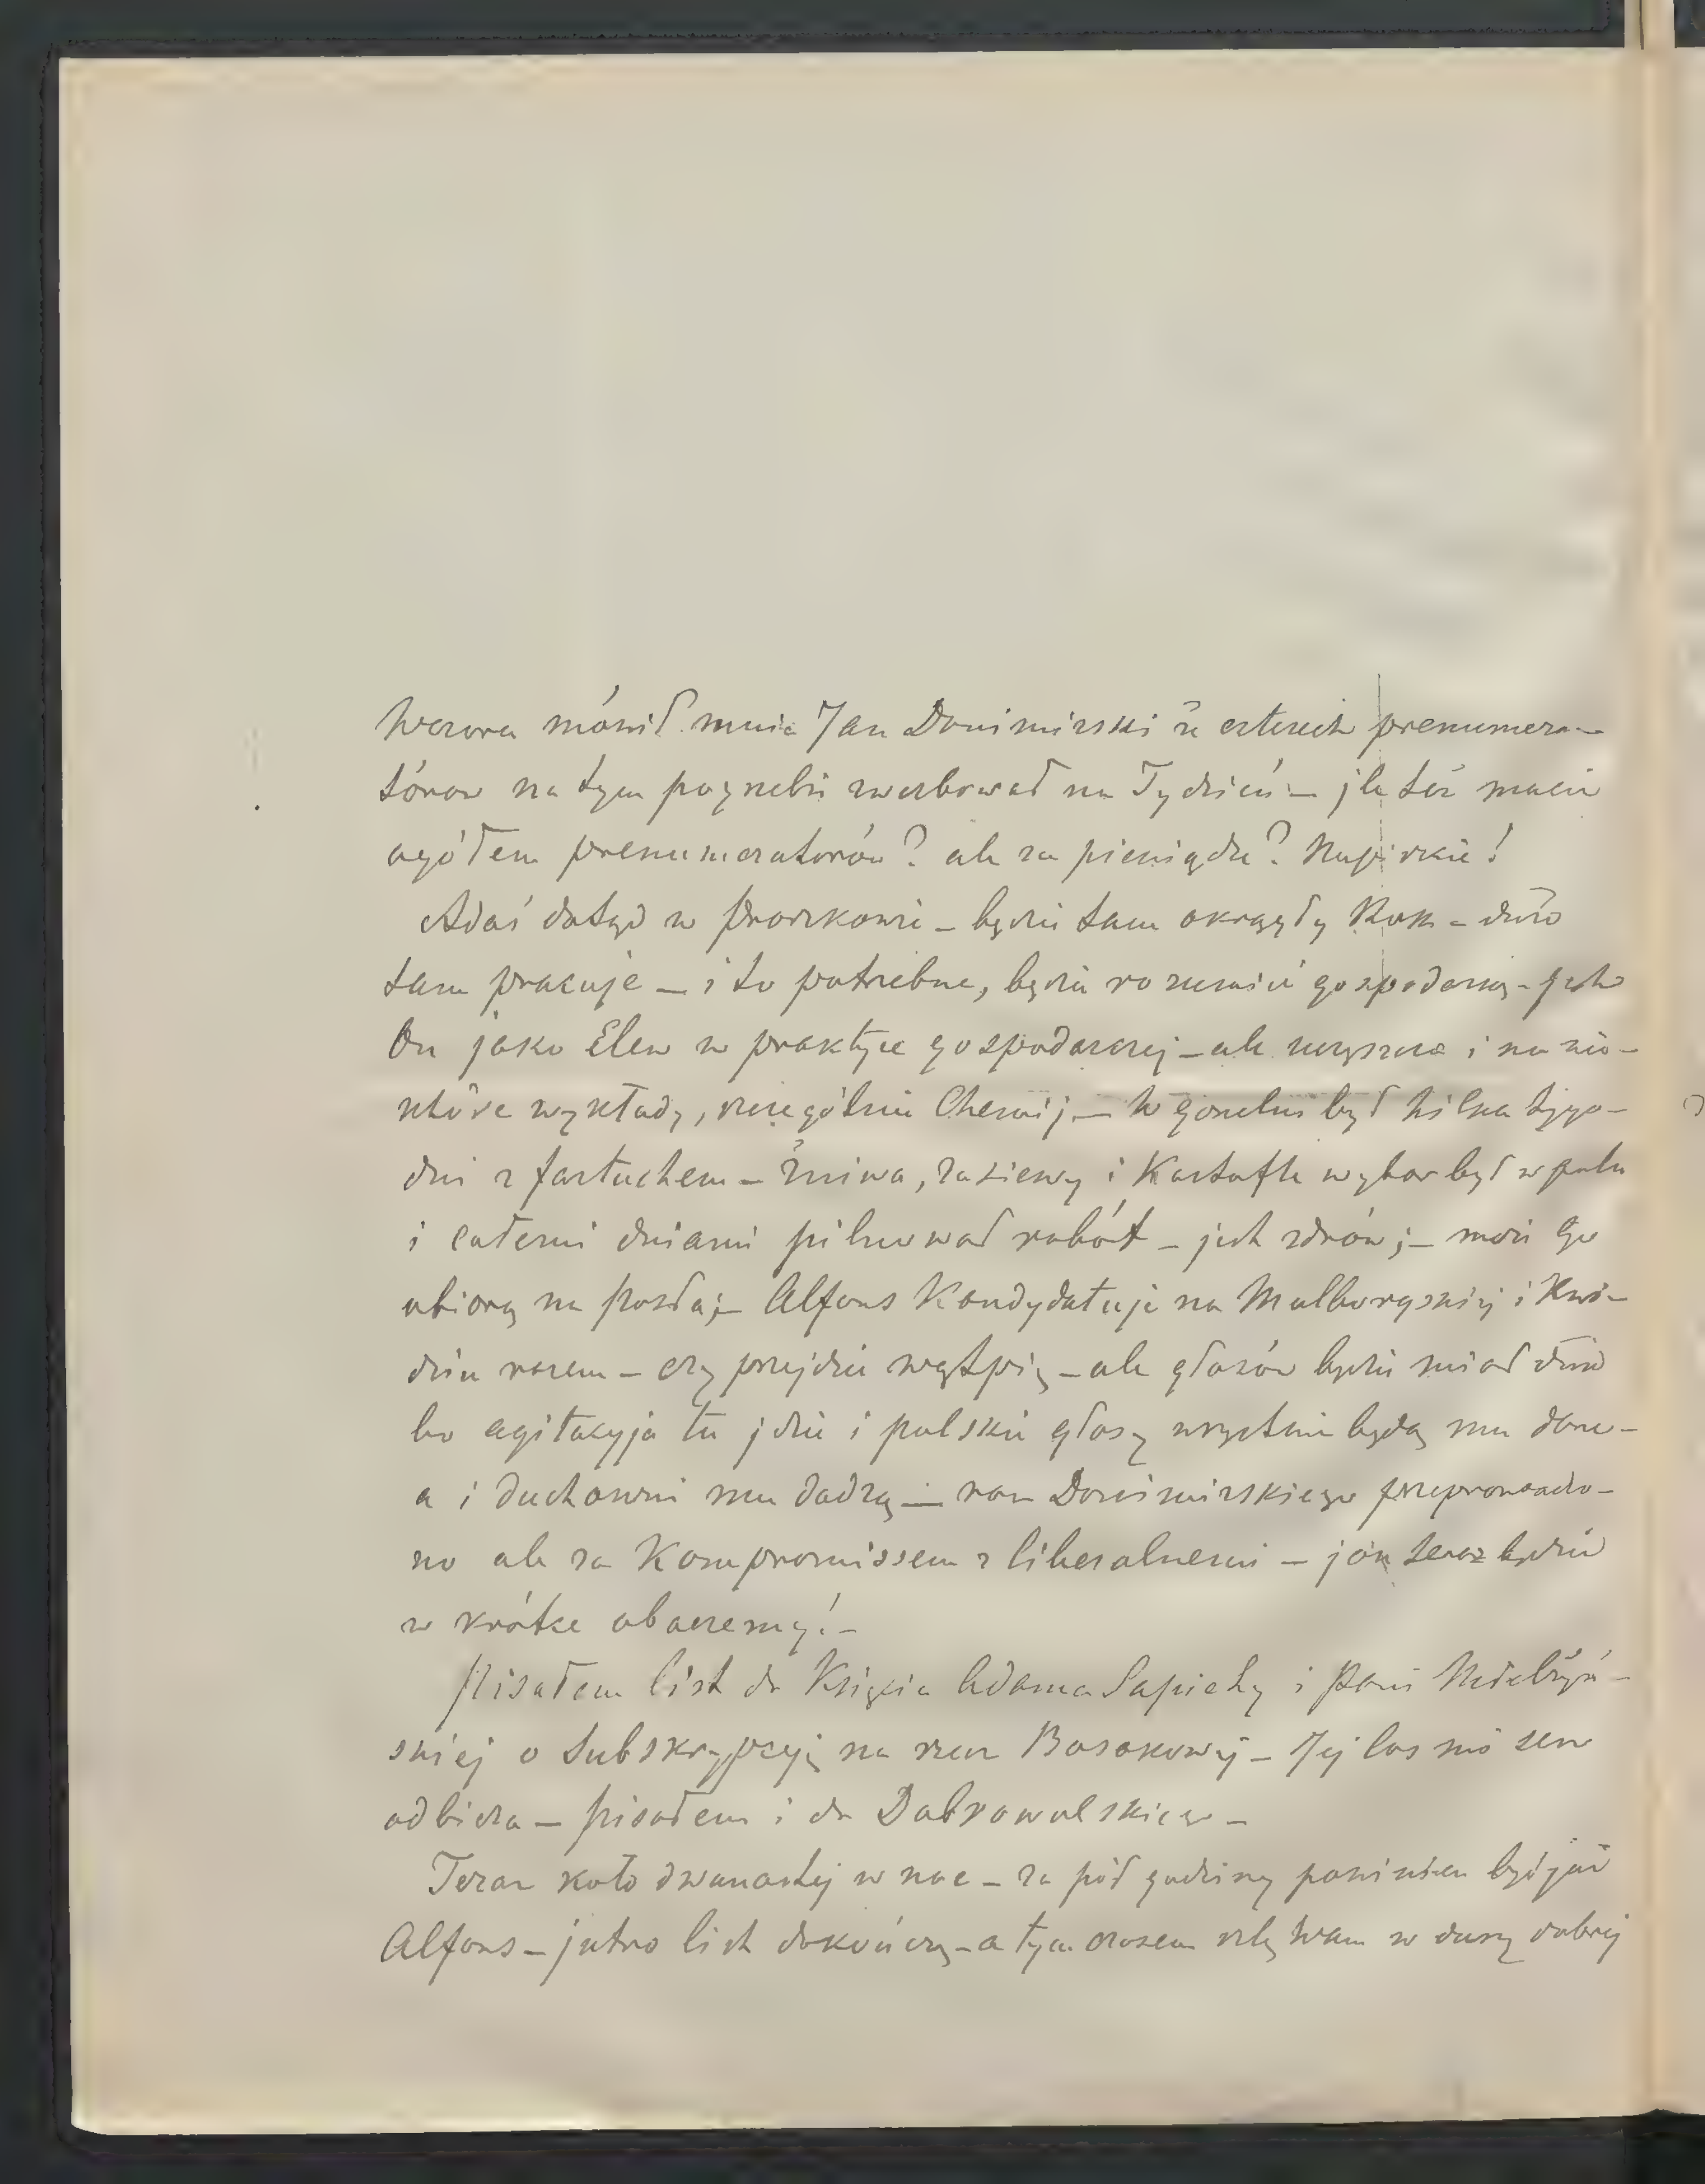 Wczora mówił mnie Jan Donimirski że czterech prenumera-
tórow na tym pogrzebie zwerbował na Tydzień - jle też macie
ogółem prenumeratorów? ale za pieniądze? Napiszcie!
Adaś dotąd w Proszkowie - będzie tam okrągły Rok - dużo
tam pracuje - i to potrzebne, będzie rozumiał gospodarkę - jest
On jako Elew w praktyce gospodarczej - ale uczęszcza i na nie-
które wykłady, szczególnie Chemij - W gorzelni był kilka tygo-
dni z fartuchem - Żniwa, zasiewy i Kartofle wybor był w polu
i całemi dniami pilnował robót - jest zdrów; - może go
obiorą na posła; - Alfons Kandydatuje na Malborgskiej i Kwi-
dzin razem - czy przejdzie wątpię - ale głosów będzie miał dużo
bo agitacyja tu jdzie i polskie głosy wszystkie będą mu dane -
a i duchowni mu dadzą - raz Donimirskiego przeprowadzo-
no ale za Kompromissem z liberalnemi - jak teraz będzie
w krótce obaczemy! -
Pisałem list do Księcia Adama Sapiehy i Pani
skiej o Subskrypcyję na rzecz Bosakowej - Jej los mi sen
odbiera - pisałem i do Dobrowolskiego -
Teraz koło dwunastej w noc - za pół godziny powinien być już
Alfons - jutro list dokończę - a tym czasem ślę Wam w duszy dobrej